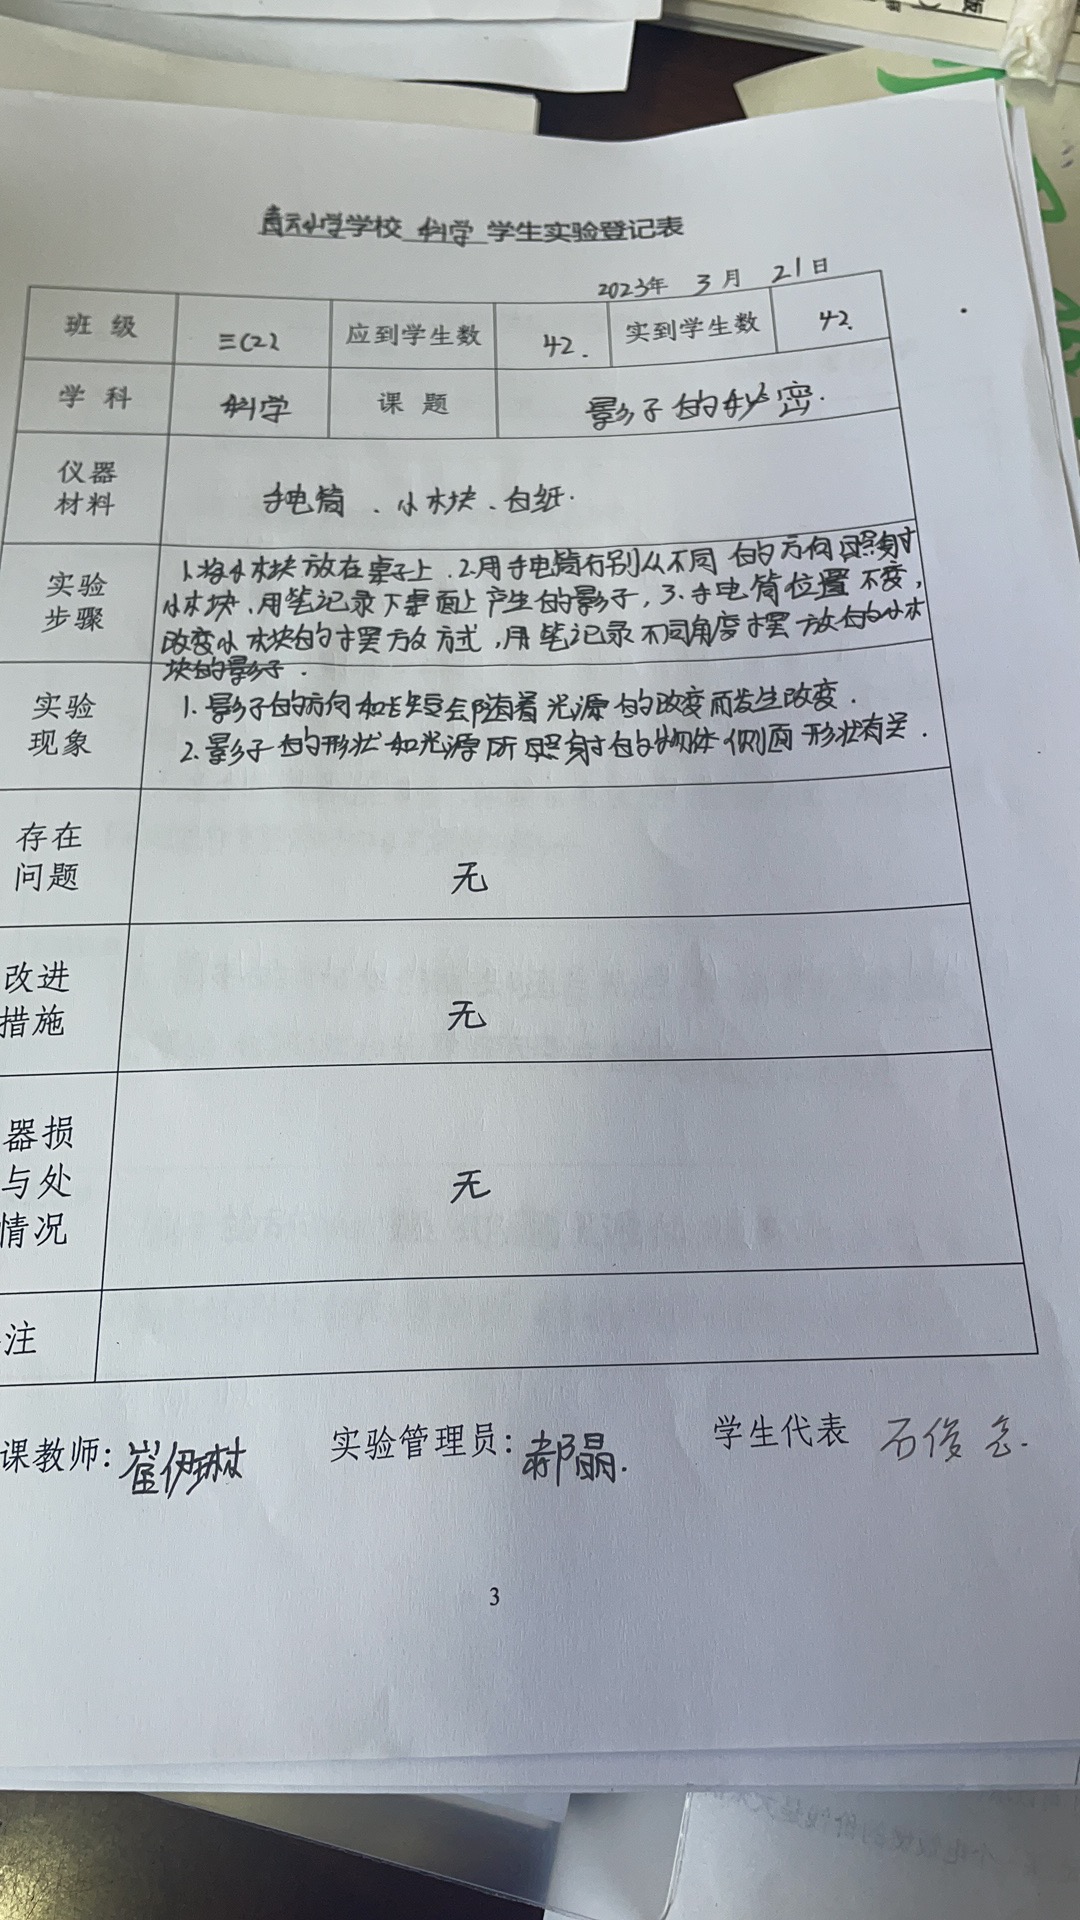 青云小学学校 科学 学生实验登记表
2023年 3月 21日
班 级 三(2) 应到学生数 42. 实到学生数 42.
学 科 科学 课 题 影子的秘密.
仪器
材料
手电筒、小木块、白纸.
实验
步骤
1.将小木块放在桌子上.2.用手电筒分别从不同的方向照射
小木块,用笔记录下桌面上产生的影子,3.手电筒位置不变,
改变小木块的摆放方式,用笔记录不同角度摆放的小木
块的影子.
实验
现象
1.影子的方向和长短会随着光源的改变而发生改变.
2.影子的形状和光源所照射的物体侧面形状有关.
存在
问题
无
改进
措施
无
器损
与处
情况
无
注
课教师:崔伊琳 实验管理员:郝晶. 学生代表 石俊
3